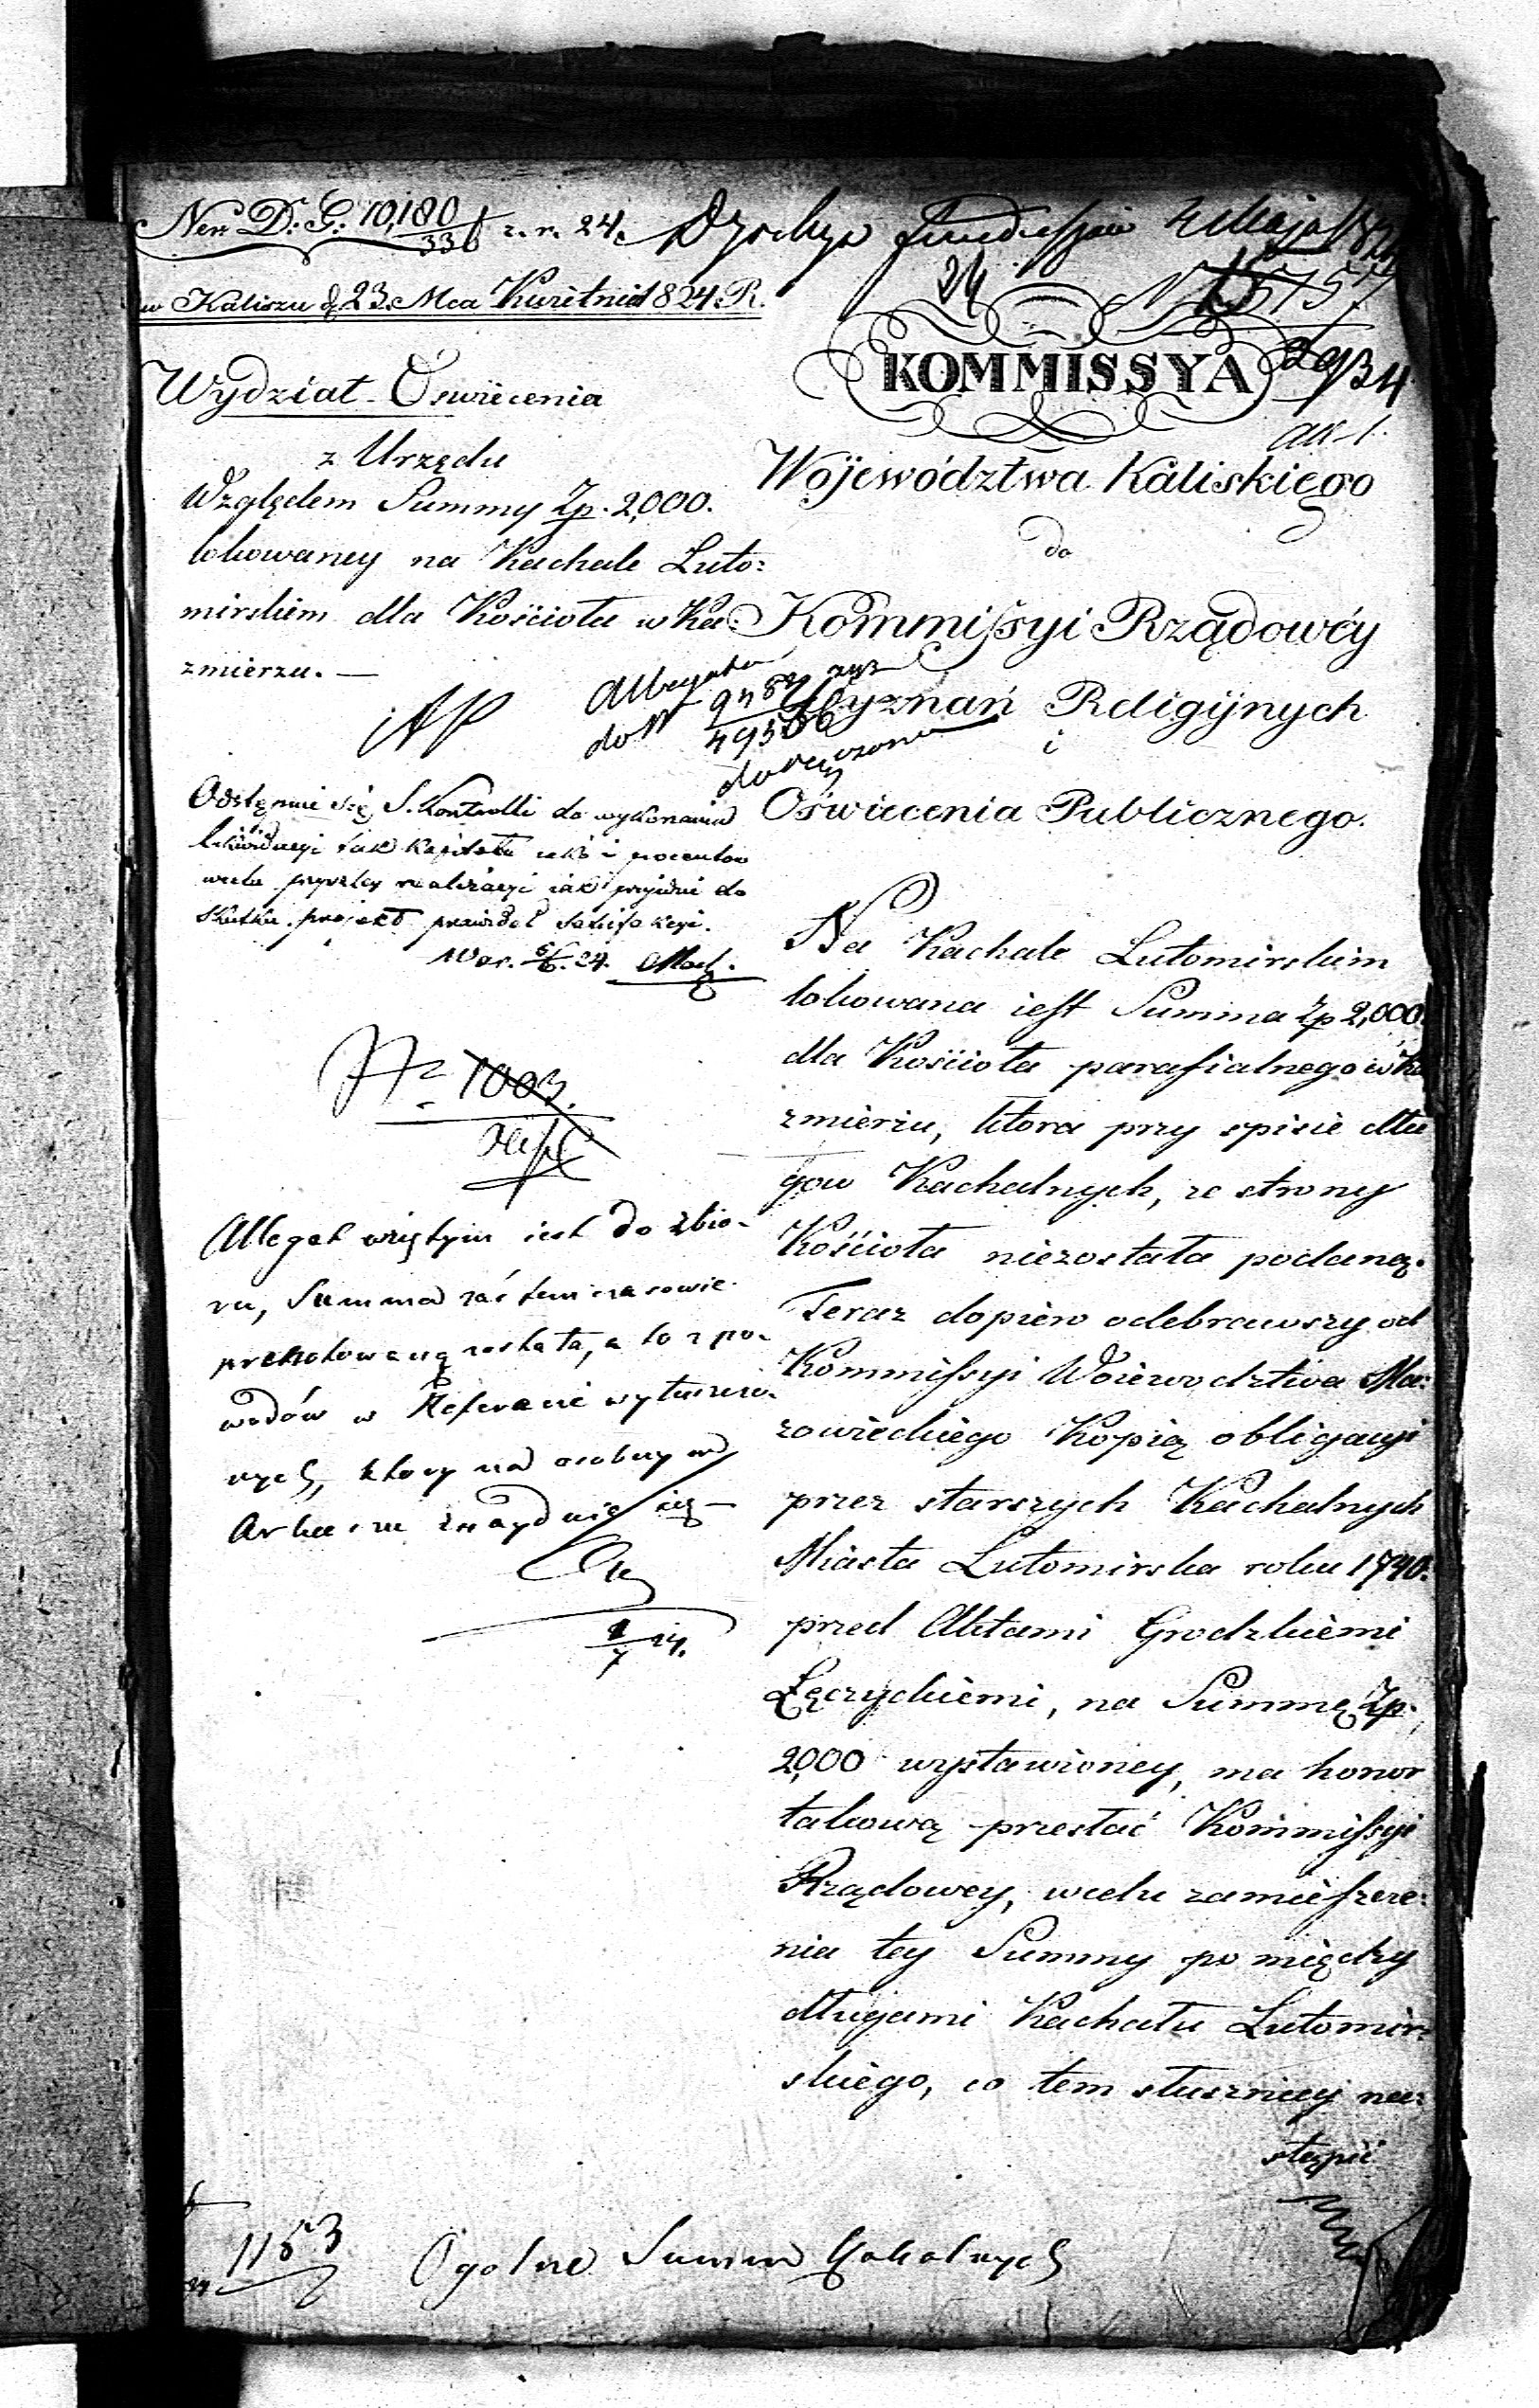 Nro D. G. 10,180/336 z. r. 24.
w Kaliszu d. 23. Mca Kwietnia 1824. R.
Wydział Oświecenia
z Urzędu
Względem Summy Zp. 2,000.
lokowaney na Kachale Luto:
mirskiem dla Kościoła w Ka:
zmierzu. —
KOMMISSYA
Województwa Kaliskiego
do
Kommissyi Rządowéy
Wyznań Religijnych
i
Oświecenia Publicznego.
Allegata
do N
dołączono
Odstępuie się S. Kontrolli do wykonania
likwidacyi tak kapitału iako i procentow
wcelu przyszłey realizacyi iak przyidzie do
skutku projekt prawideł satisfakcyi.
War. 5/6. 24.
Nr 1003.
Allegat wziętym iest do zbio-
ru, Summa zaś tem czasowie
prenotowaną została, a to z po-
wodów w Referacie wytuszczo-
nych, który na osobnym
Arkuszu znayduie się —
1/7 24.
Na Kachale Lutomirskim
lokowana iest Summa Zp 2,000.
dla Kościoła parafialnego w Ka
zmierzu, ktora przy spisie dłu
gow Kachalnych, ze strony
Kościoła niezostała podaną.
Teraz dopiero odebrawszy od
Kommissyi Woiewodztwa Ma:
zowieckiego Kopią obligacyi
przez starszych Kachalnych
Miasta Lutomirska roku 1740.
przed Aktami Grodzkiemi
Łęczyckiemi, na Summę Zp.
2,000 wystawioney, ma honor
takową przesłać Kommissyi
Rządowey, wcelu zamieszcze:
nia tey Summy po między
długami Kachału Lutomir:
skiego, co tem słuszniey na:
stąpić
1153
Ogolne Summ Kahalnych